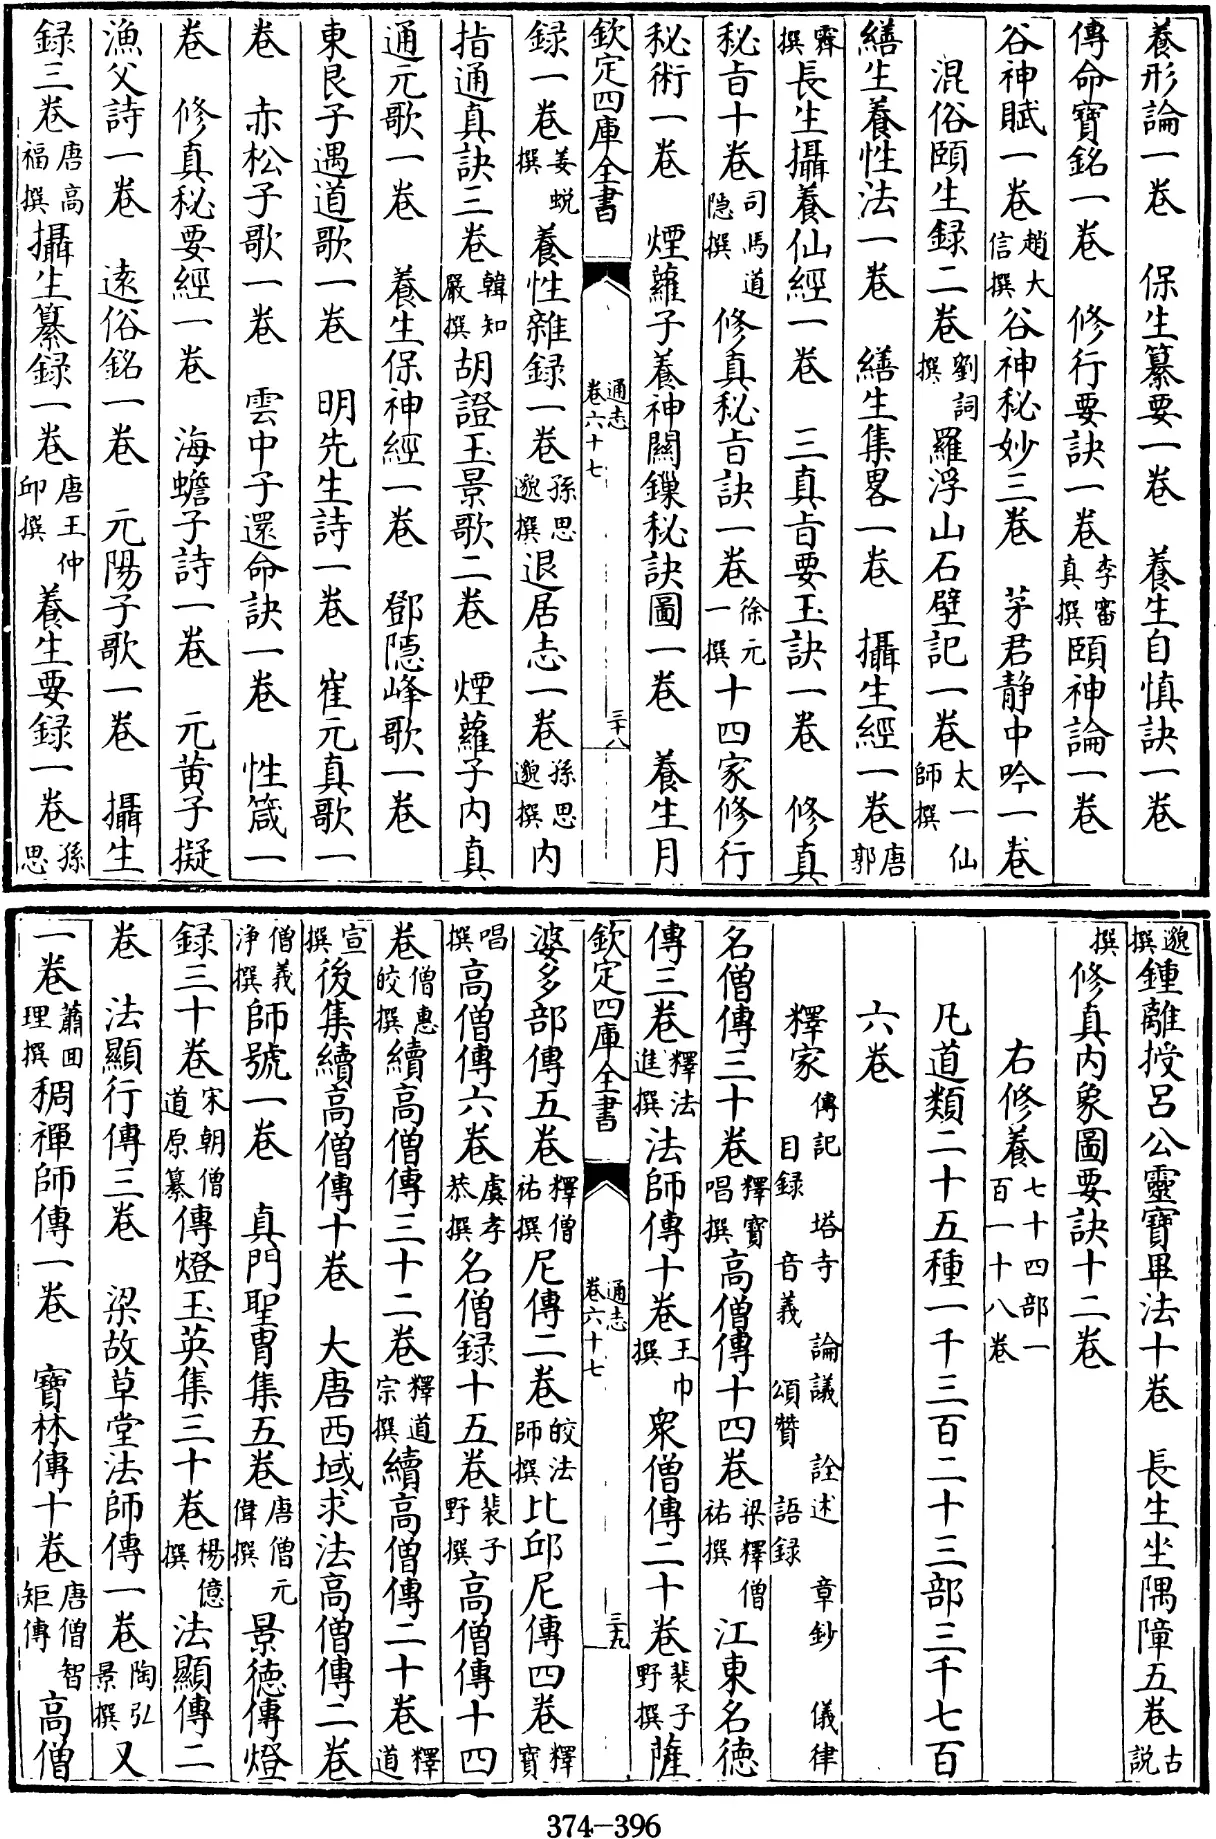 養形論一卷　保生纂要一卷　養生自慎訣一卷
傳命寶銘一卷　修行要訣一卷李審真撰頤神論一卷
谷神賦一卷趙大信撰谷神秘妙三卷　茅君靜中吟一卷
混俗頤生録二卷劉詞撰羅浮山石壁記一卷太一仙師撰
繕生養性法一卷　繕生集畧一卷　攝生經一卷唐郭
霽撰長生攝養仙經一卷　三真旨要玉訣一卷　修真
秘旨十卷司馬道隱撰　修真秘旨訣一卷徐元一撰十四家修行
秘術一卷　煙蘿子養神關鏁秘訣圖一卷　養生月
欽定四庫全書　通志卷六十七　三十八
録一卷姜蛻撰養性雜録一卷孫思邈撰退居志一卷孫思邈撰内
指通真訣三卷韓知嚴撰胡證玉景歌二卷　煙蘿子内真
通元歌一卷　養生保神經一卷　鄧隱峰歌一卷
東艮子遇道歌一卷　明先生詩一卷　崔元真歌一
卷　赤松子歌一卷　雲中子還命訣一卷　性箴一
卷　修真秘要經一卷　海蟾子詩一卷　元黄子擬
漁父詩一卷　逺俗銘一卷　元陽子歌一卷　攝生
録三卷唐高福撰攝生纂録一卷唐王仲邱撰養生要録一卷孫思
邈撰鍾離授呂公靈寶畢法十卷　長生坐隅障五卷古説
撰修真内象圖要訣十二卷
右修養七十四部一百一十八卷
凡道類二十五種一千三百二十三部三千七百
六卷
釋家傳記　塔寺　論議　詮述　章鈔　儀律　目録　音義　頌贊　語録
名僧傳三十卷釋寶唱撰高僧傳十四卷梁釋僧祐撰江東名徳
傳三卷釋法進撰法師傳十卷王巾撰衆僧傳二十卷裴子野撰薩
欽定四庫全書　通志卷六十七　三十九
婆多部傳五卷釋僧祐撰尼傳二卷皎法師撰比邱尼傳四卷釋寶
唱撰高僧傳六卷虞孝恭撰名僧録十五卷裴子野撰高僧傳十四
卷僧惠皎撰續高僧傳三十二卷釋道宗撰續高僧傳二十卷釋道
宣撰後集續高僧傳十卷　大唐西域求法高僧傳二卷
僧義浄撰師號一卷　真門聖胄集五卷唐僧元偉撰景徳傳燈
録三十卷宋朝僧道原纂傳燈玉英集三十卷楊億撰法顯傳二
卷　法顯行傳三卷　梁故草堂法師傳一卷陶弘景撰又
一卷蕭囬理撰稠禪師傳一卷　寶林傳十卷唐僧智矩傳高僧
374-396